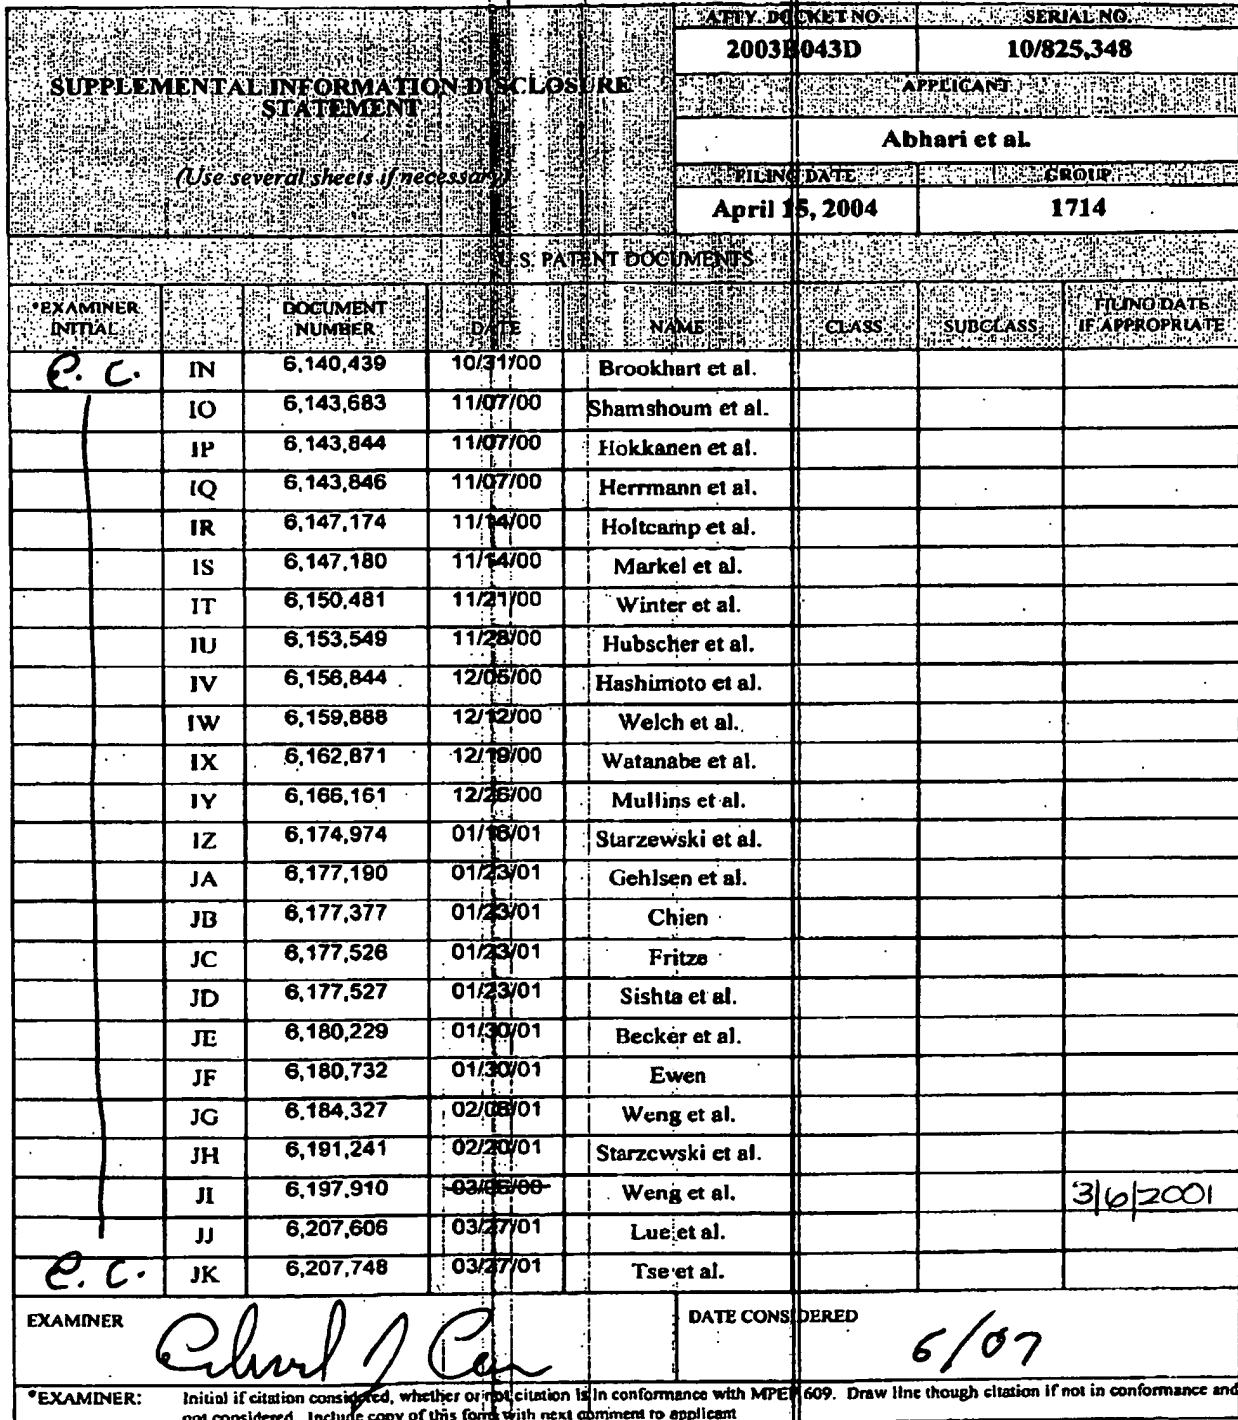 ATTY. DOCKET NO. SERIAL NO.
2003B043D 10/825,348
SUPPLEMENTAL INFORMATION DISCLOSURE
STATEMENT
APPLICANT
Abhari et al.
(Use several sheets if necessary)
FILING DATE GROUP
April 15, 2004 1714
U.S. PATENT DOCUMENTS
*EXAMINER INITIAL DOCUMENT NUMBER DATE NAME CLASS SUBCLASS FILING DATE IF APPROPRIATE
e. c. IN 6,140,439 10/31/00 Brookhart et al.
IO 6,143,683 11/07/00 Shamshoum et al.
IP 6,143,844 11/07/00 Hokkanen et al.
IQ 6,143,846 11/07/00 Herrmann et al.
IR 6,147,174 11/14/00 Holtcamp et al.
IS 6,147,180 11/14/00 Markel et al.
IT 6,150,481 11/21/00 Winter et al.
IU 6,153,549 11/28/00 Hubscher et al.
IV 6,156,844 12/05/00 Hashimoto et al.
IW 6,159,888 12/12/00 Welch et al.
IX 6,162,871 12/19/00 Watanabe et al.
IY 6,166,161 12/26/00 Mullins et al.
IZ 6,174,974 01/16/01 Starzewski et al.
JA 6,177,190 01/23/01 Gehlsen et al.
JB 6,177,377 01/23/01 Chien
JC 6,177,526 01/23/01 Fritze
JD 6,177,527 01/23/01 Sishta et al.
JE 6,180,229 01/30/01 Becker et al.
JF 6,180,732 01/30/01 Ewen
JG 6,184,327 02/06/01 Weng et al.
JH 6,191,241 02/20/01 Starzewski et al.
JI 6,197,910 03/06/00 Weng et al. 3/6/2001
JJ 6,207,606 03/27/01 Lue et al.
e. c. JK 6,207,748 03/27/01 Tse et al.
EXAMINER DATE CONSIDERED 6/07
*EXAMINER: Initial if citation considered, whether or not citation is in conformance with MPEP 609. Draw line though citation if not in conformance and
not considered. Include copy of this form with next comment to applicant